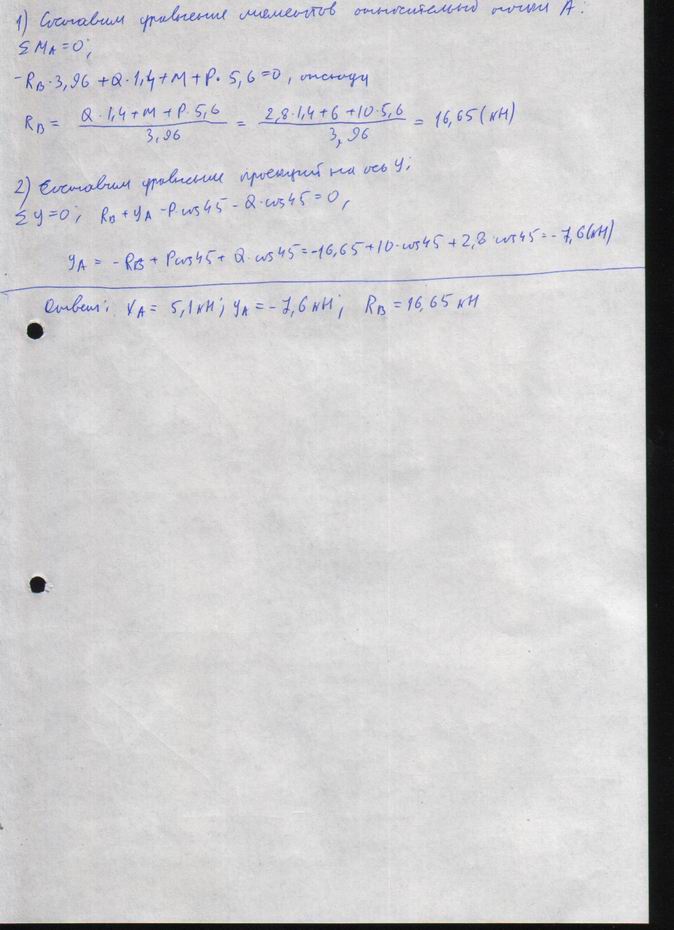 1) Составим уравнение моментов относительно точки A:
ΣM_A=0;
-R_B·3,96+Q·1,4+M+P·5,6=0, откуда
R_B = (Q·1,4+M+P·5,6)/3,96 = (2,8·1,4+6+10·5,6)/3,96 = 16,65(кН)
2) Составим уравнение проекций на ось y:
Σy=0; R_B+y_A-P·cos45-Q·cos45=0,
y_A = -R_B+Pcos45+Q·cos45=-16,65+10·cos45+2,8·cos45=-7,6(кН)
Ответ: X_A= 5,1кН; y_A=-7,6кН; R_B=16,65кН